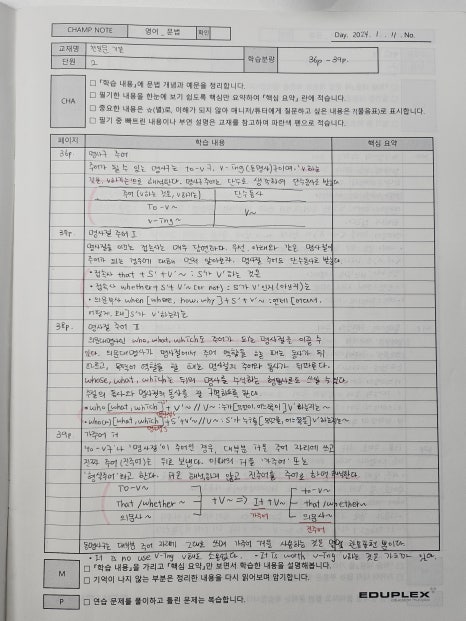 CHAMP NOTE 영어 _ 문법 확인
Day. 2024. 1. 11. No.
교재명 천일문 기본 학습분량 36p ~ 39p.
단원 2
CHA
□ 『학습 내용』에 문법 개념과 예문을 정리합니다.
□ 필기한 내용을 한눈에 보기 쉽도록 핵심만 요약하여 『핵심 요약』 란에 적습니다.
□ 중요한 내용은 ☆(별)로, 이해가 되지 않아 매니저/튜터에게 질문하고 싶은 내용은 ?(물음표)로 표시합니다.
□ 필기 중 빠트린 내용이나 부연 설명은 교재를 참고하여 파란색 펜으로 적습니다.
페이지 학습 내용 핵심 요약
36p. 명사구 주어
주어가 될 수 있는 명사구는 to-v구, v-ing(동명사)구이며, 'v하는
것은, v하기는'으로 해석한다. 명사구 주어는 단수로 생각하여 단수동사로 받는다
주어 (v하는 것은, v하기는) 단수동사
To-v~
v-ing~ V~
37p. 명사절 주어 I
명사절을 이끄는 접속사는 매우 다양하다. 우선, 아래와 같은 명사절이
주어가 되는 경우에 대해 먼저 알아보자. 명사절 주어도 단수동사로 받는다
• 접속사 that + S' + V' ~ : S'가 V'하는 것은
• 접속사 whether + S' + V' ~ (or not) : S'가 V'인지 (아닌지)는
• 의문부사 when [where, how, why] + S' + V' ~ : 언제 [어디서,
어떻게, 왜] S'가 V'하는지는
38p. 명사절 주어 II
의문대명사인 who, what, which도 주어가 되는 명사절을 이끌 수
있다. 의문대명사가 명사절에서 주어 역할을 할 때는 동사가 뒤
따르고, 목적어 역할을 할 때는 명사절의 주어와 동사가 뒤따른다.
whose, what, which는 뒤의 명사를 수식하는 형용사로도 쓰일 수 있다.
주절의 동사와 명사절의 동사를 잘 구별하도록 한다.
• who [what, which] + V' ~ // V ~ : 누가 [무엇이, 어느 쪽이] V'하는지는 ~
• who(m) [what, which] + S' + V' ~ // V ~ : S'가 누구를 [무엇을, 어느 쪽을] V'하는지는 ~
39p. 가주어 it
to-v구나 명사절이 주어인 경우, 대부분 it을 주어 자리에 쓰고
진짜 주어(진주어)는 뒤로 보낸다. 이때의 it을 '가주어' 또는
형식주어'라고 한다. it은 해석하지 않고 진주어를 주어로 하여 해석한다
To-v ~ to-v ~
That / whether ~ + V ~ ⇒ It + V ~ that / whether ~
의문사 ~ 가주어 의문사 ~
진주어
동명사는 대부분 주어 자리에 그대로 쓰며 가주어 it을 사용하는 것은 관용표현
• It is no use v-ing v해도 소용없다. • It is worth v-ing v하는 것은 가치가 있다.
M
□ 『학습 내용』을 가리고 『핵심 요약』만 보면서 학습한 내용을 설명해봅니다.
□ 기억이 나지 않는 부분은 정리한 내용을 다시 읽어보며 암기합니다.
P □ 연습 문제를 풀이하고 틀린 문제는 복습합니다.
EDUPLEX